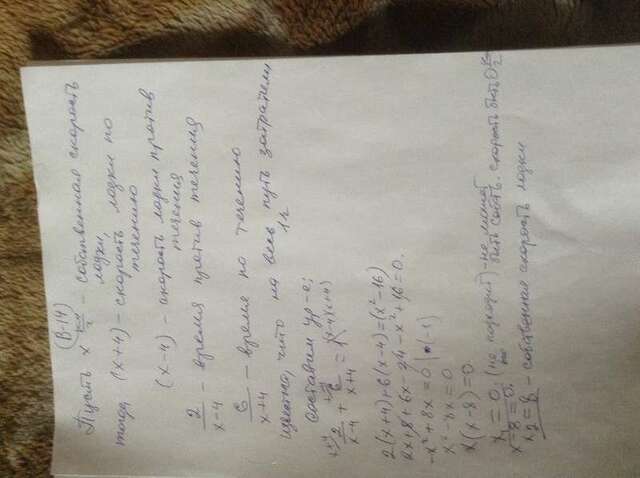 (В-14)
Пусть x км/ч - собственная скорость
лодки,
тогда (x+4) - скорость лодки по
течению
(x-4) - скорость лодки против
течения
2/(x-4) - время против течения
6/(x+4) - время по течению
известно, что на весь путь затратили
1ч
Составим ур-е;
2/(x-4) + 6/(x+4) = 1 (x-4)(x+4)
2(x+4)+6(x-4)=(x²-16)
2x+8+6x-24-x²+16=0.
-x²+8x=0 |·(-1)
x²-8x=0
x(x-8)=0
x₁=0; (не подходит) - не может
быть собств. скорость быть 0 км/ч
x-8=0;
x₂=8 - собственная скорость лодки